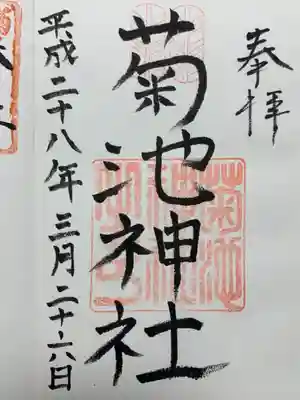 奉拝
菊池神社
平成二十八年三月二十六日